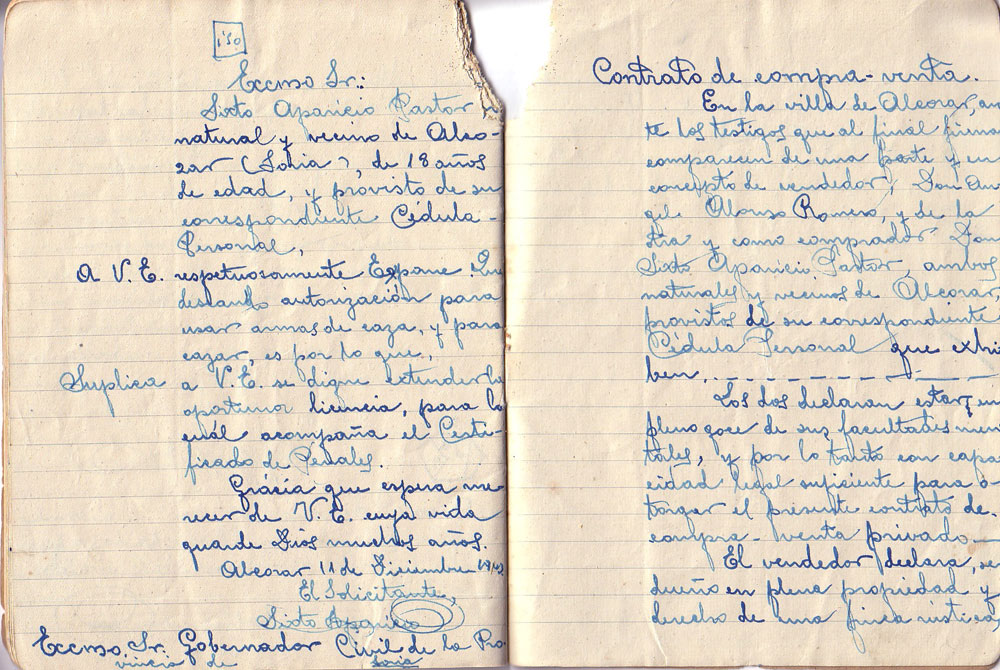 1'50
Excmo Sr.:
Sixto Aparicio Pastor
natural y vecino de Alco-
zar (Soria), de 18 años
de edad, y provisto de su
correspondiente Cédula-
Personal,
A V. E. respetuosamente Expone Que
deseando autorización para
usar armas de caza, y para
cazar, es por lo que,
Suplica a V. E. se digne extender la
oportuna licencia, para lo
cuál acompaña el Certi-
ficado de Penales.
Grácia que espera me-
recer de V. E. cuya vida
guarde Dios muchos años.
Alcozar 11 de Diciembre 1942
El Solicitante,
Sixto Aparicio
Excmo. Sr. Gobernador Civil de la Pro-
vincia de Soria
Contrato de compra-venta.
En la villa de Alcozar, an
te los testigos que al final firman
comparecen de una parte y en
concepto de vendedor, Don An
gel Alonso Romero, y de la
otra y como comprador Don
Sixto Aparicio Pastor, ambos
naturales y vecinos de Alcozar,
provistos de su correspondiente
Cédula Personal que exhi
ben,
Los dos declaran estar en
pleno goce de sus facultades men
tales, y por lo tanto con capa
cidad legal suficiente para o-
torgar el presente contrato de
compra-venta privado
El vendedor declara, se
dueño en plena propiedad y
derecho de una finca rústica,